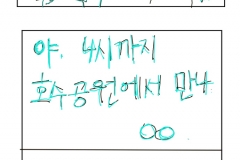 야. 4시까지
호수공원에서 만나